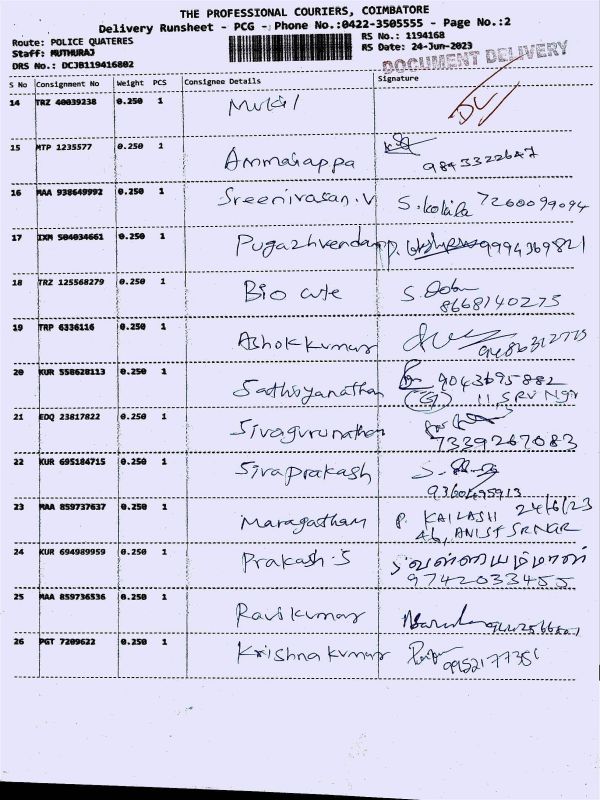 THE PROFESSIONAL COURIERS, COIMBATORE
Delivery Runsheet - PCG - Phone No.:0422-3505555 - Page No.:2
Route: POLICE QUATERES RS No.: 1194168
Staff: MUTHURAJ RS Date: 24-Jun-2023
DRS No.: DCJB119416802 DOCUMENT DELIVERY
S No Consignment No Weight PCS Consignee Details Signature
14 TRZ 40039238 0.250 1
15 MTP 1235577 0.250 1
Ammaiappa 9843322647
16 MAA 938649992 0.250 1
Sreenivasan.V S. Kokila 7200099094
17 IXM 504034661 0.250 1
Pugazhvendan 9994369821
18 TRZ 125568279 0.250 1
Bio cute S.
8668140275
19 TRP 6336116 0.250 1
Ashokkumar
20 KUR 558628113 0.250 1
Sathiyanathan 9043695882
11, SRV Ngr
21 EDQ 23817822 0.250 1
Sivagurunathan
7339267083
22 KUR 695184715 0.250 1
Sivaprakash
9360495913
23 MAA 859737637 0.250 1
Maragatham P. KAILASH 24/6/23
46, ANIST SR NGR
24 KUR 694989959 0.250 1
Prakash.S
9742033455
25 MAA 859736536 0.250 1
Ravikumar
26 PGT 7209622 0.250 1
Krishnakumar